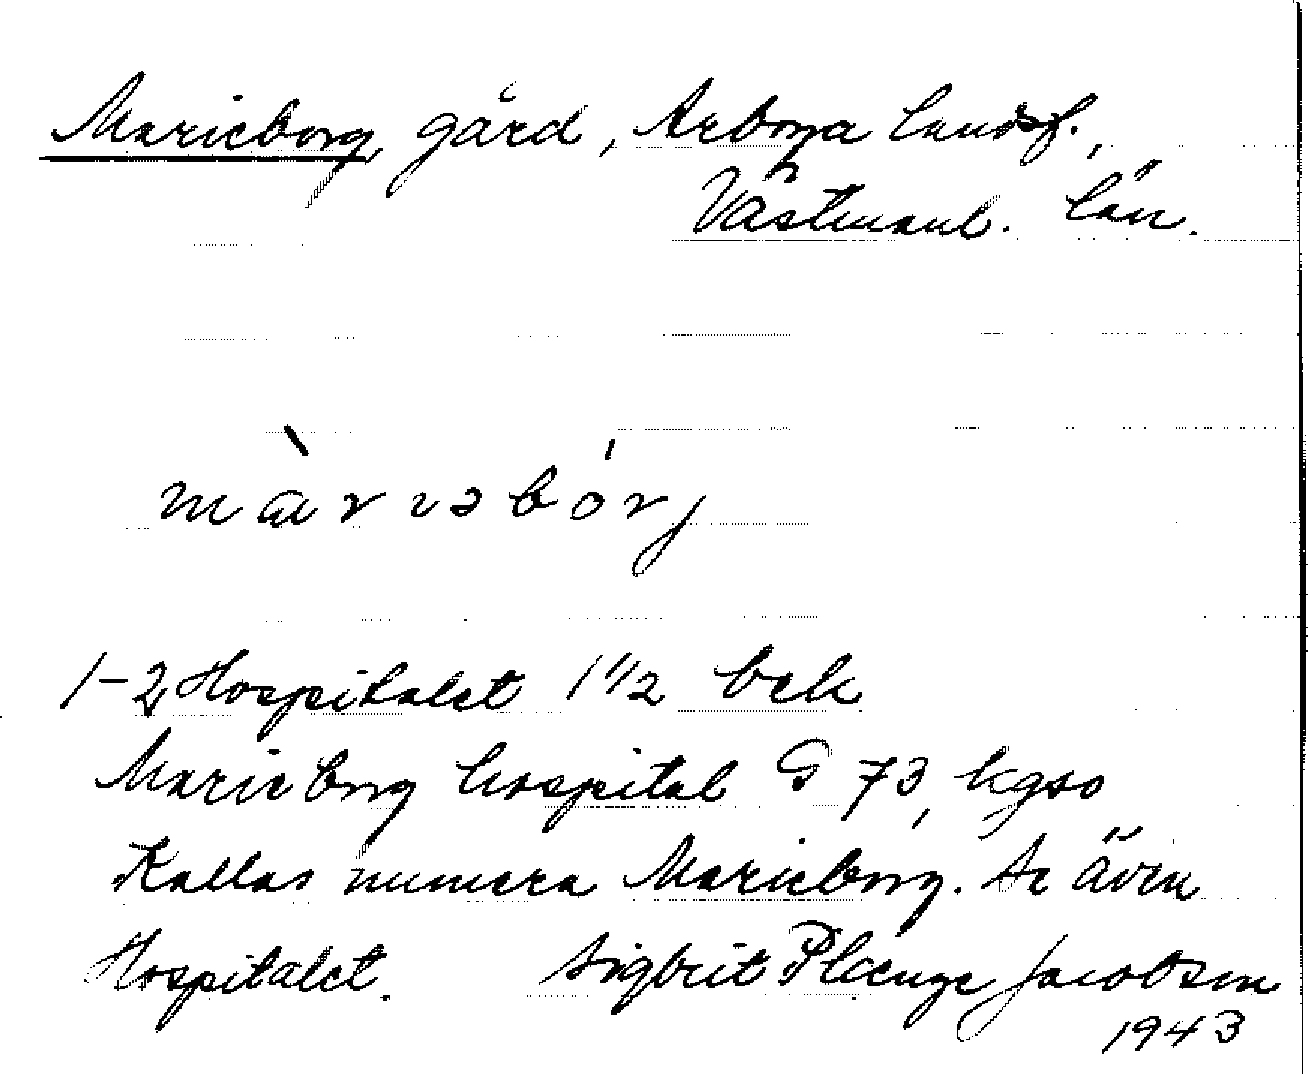 Marieborg, gård, Arboga landsf.,
Västmanl. län.
màrıəbórj
1-2 Hospitalet 1 1/2 bek
Marieborg hospital G 73, kgso
Kallas numera Marieborg. Se även
Hospitalet. Sigbrit Plænge Jacobson
1943